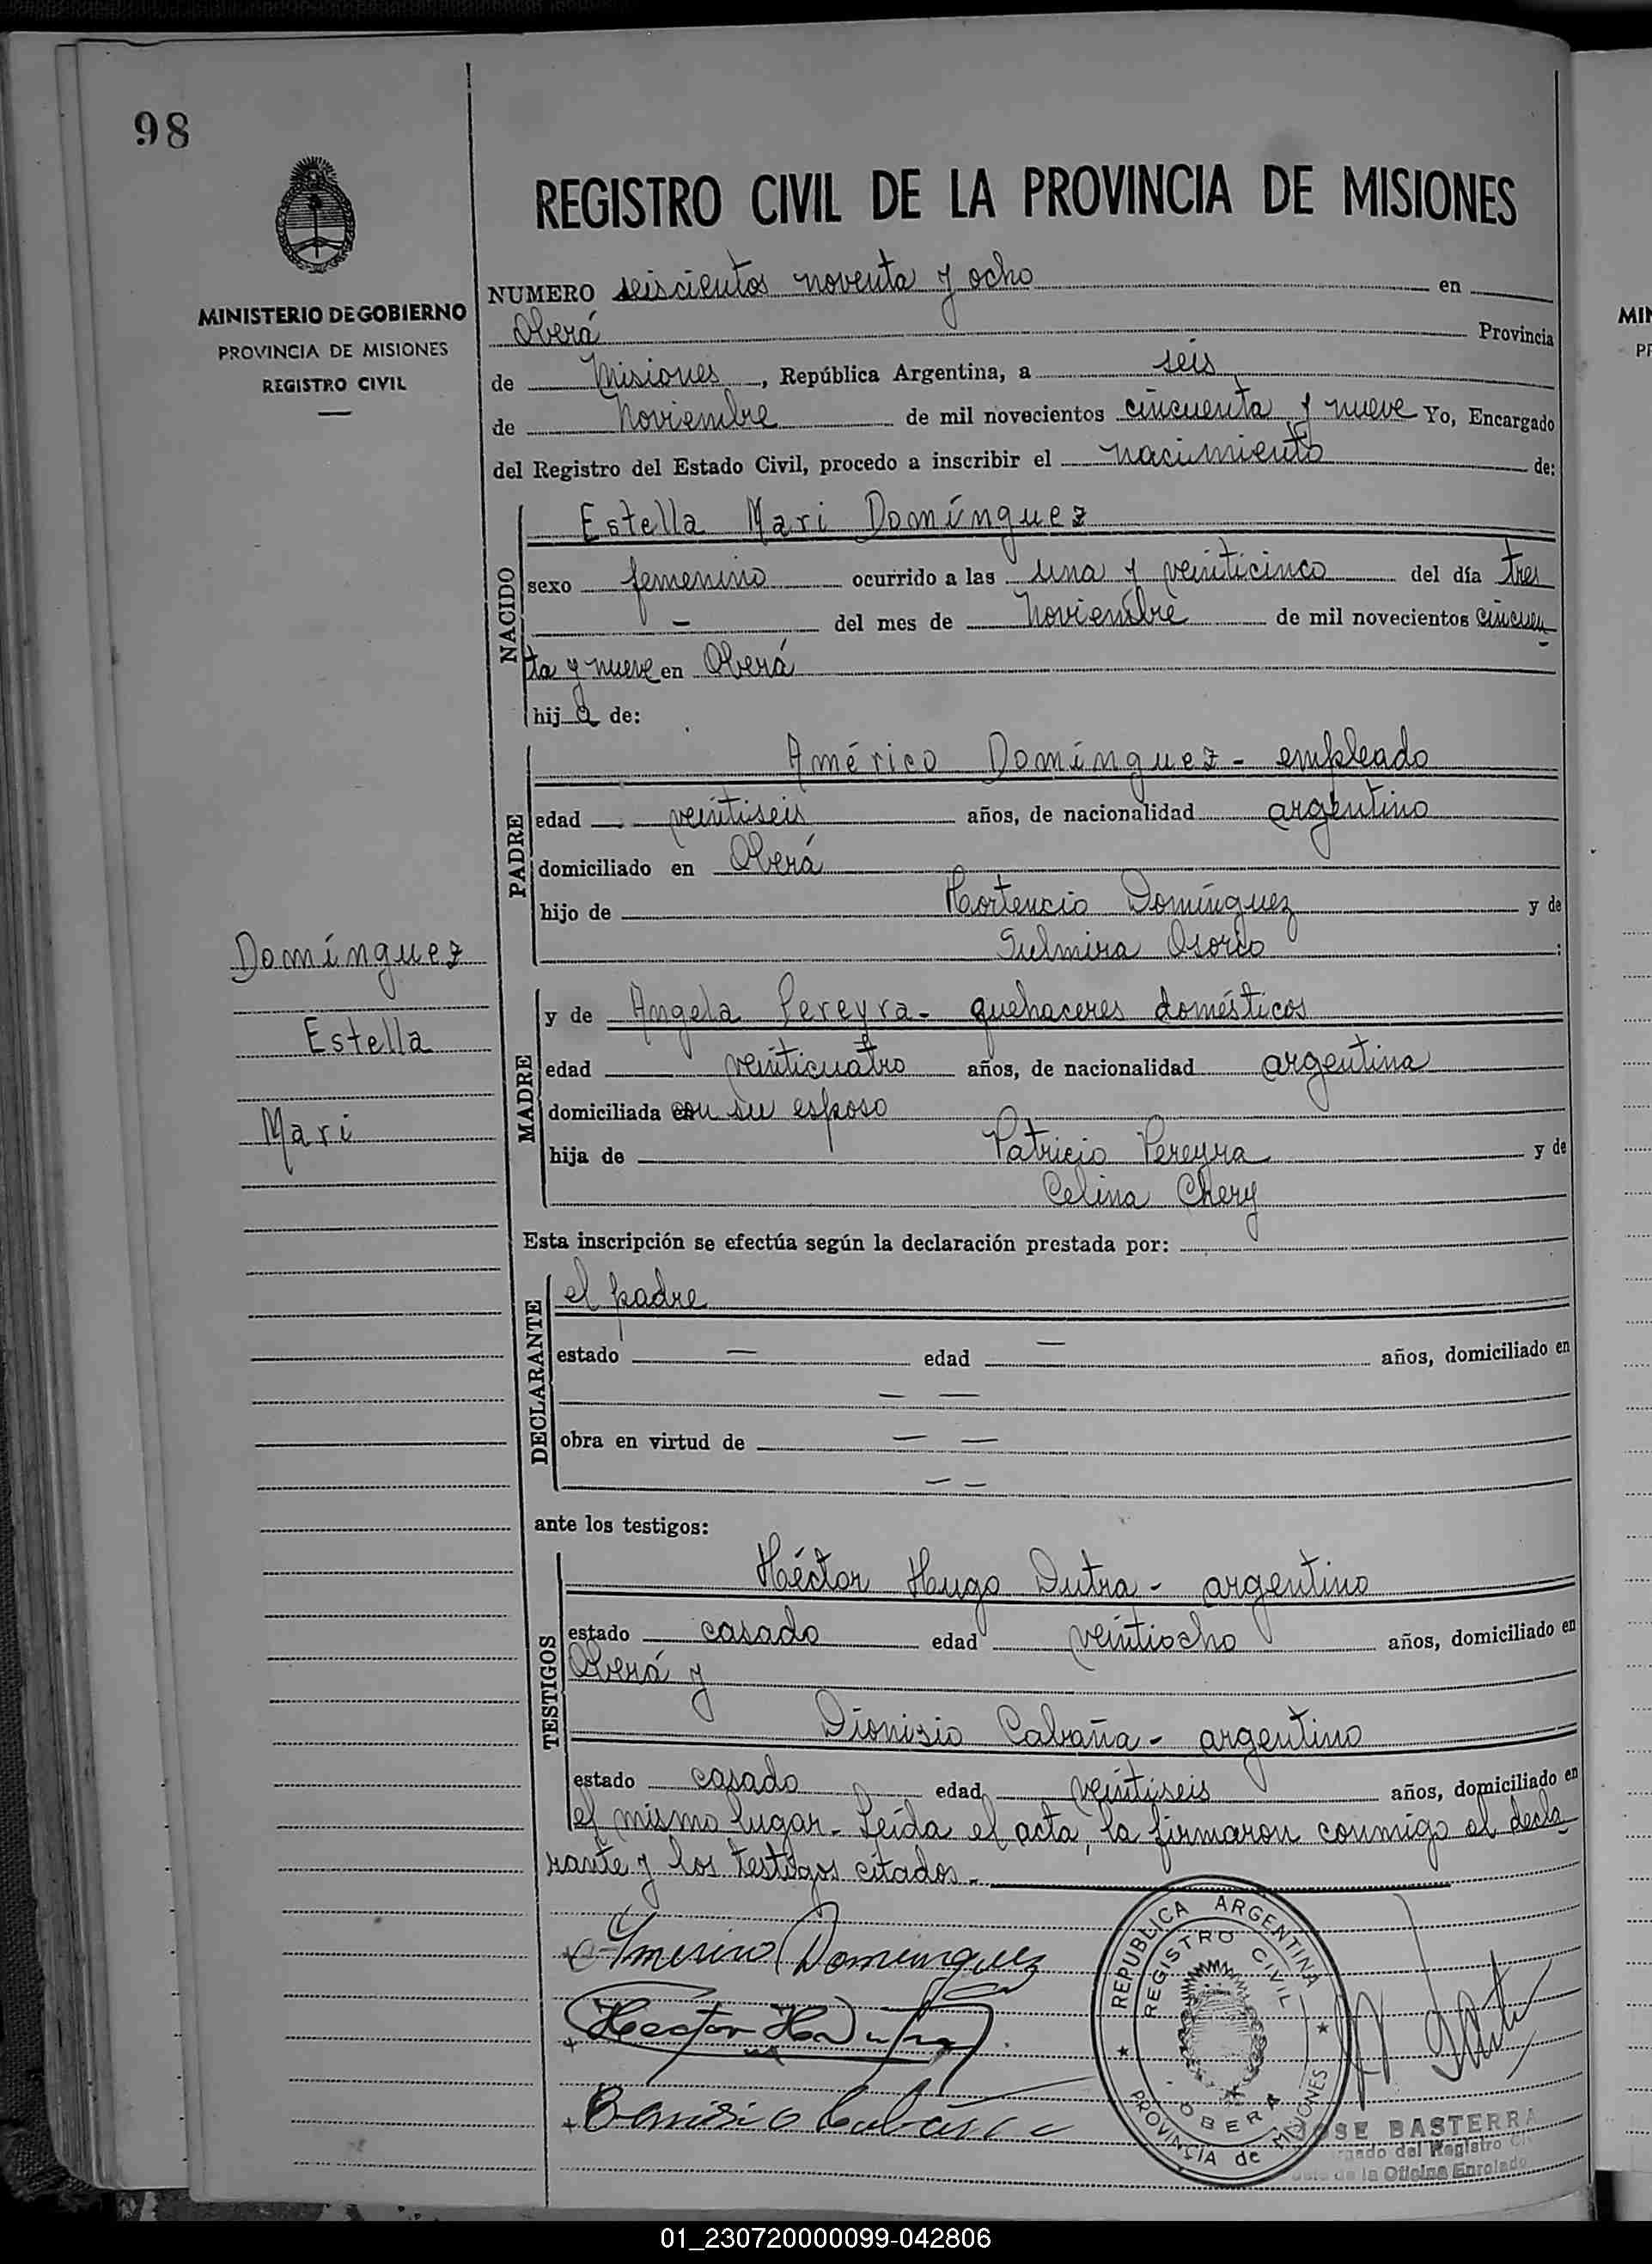 98
MINISTERIO DE GOBIERNO
PROVINCIA DE MISIONES
REGISTRO CIVIL
REGISTRO CIVIL DE LA PROVINCIA DE MISIONES
NUMERO seiscientos noventa y ocho en
Oberá Provincia
de Misiones, República Argentina, a seis
de Noviembre de mil novecientos cincuenta y nueve Yo, Encargado
del Registro del Estado Civil, procedo a inscribir el nacimiento de:
NACIDO
Estella Mari Domínguez
sexo femenino ocurrido a las una y veinticinco del día tres
- del mes de Noviembre de mil novecientos cincuen
ta y nueve en Oberá
hija de:
PADRE
Américo Domínguez - empleado
edad veintiseis años, de nacionalidad argentino
domiciliado en Oberá
hijo de Hortencio Domínguez y de
Sulmira Osorio :
Domínguez
Estella
Mari
MADRE
y de Angela Pereyra - quehaceres domésticos
edad veinticuatro años, de nacionalidad argentina
domiciliada con su esposo
hija de Patricio Pereyra y de
Celina Chery
Esta inscripción se efectúa según la declaración prestada por:
DECLARANTE
el padre
estado — edad — años, domiciliado en
— —
obra en virtud de — —
— —
ante los testigos:
TESTIGOS
Héctor Hugo Dutra - argentino
estado casado edad veintiocho años, domiciliado en
Oberá y
Dionisio Cabaña - argentino
estado casado edad veintiseis años, domiciliado en
el mismo lugar - Leída el acta, la firmaron conmigo el decla
rante y los testigos citados -
Domínguez
Hector H Dutra
REPUBLICA ARGENTINA
REGISTRO CIVIL
OBERA
PROVINCIA de MISIONES
JOSE BASTERRA
del Registro
de la Oficina Enrolado
01_230720000099-042806